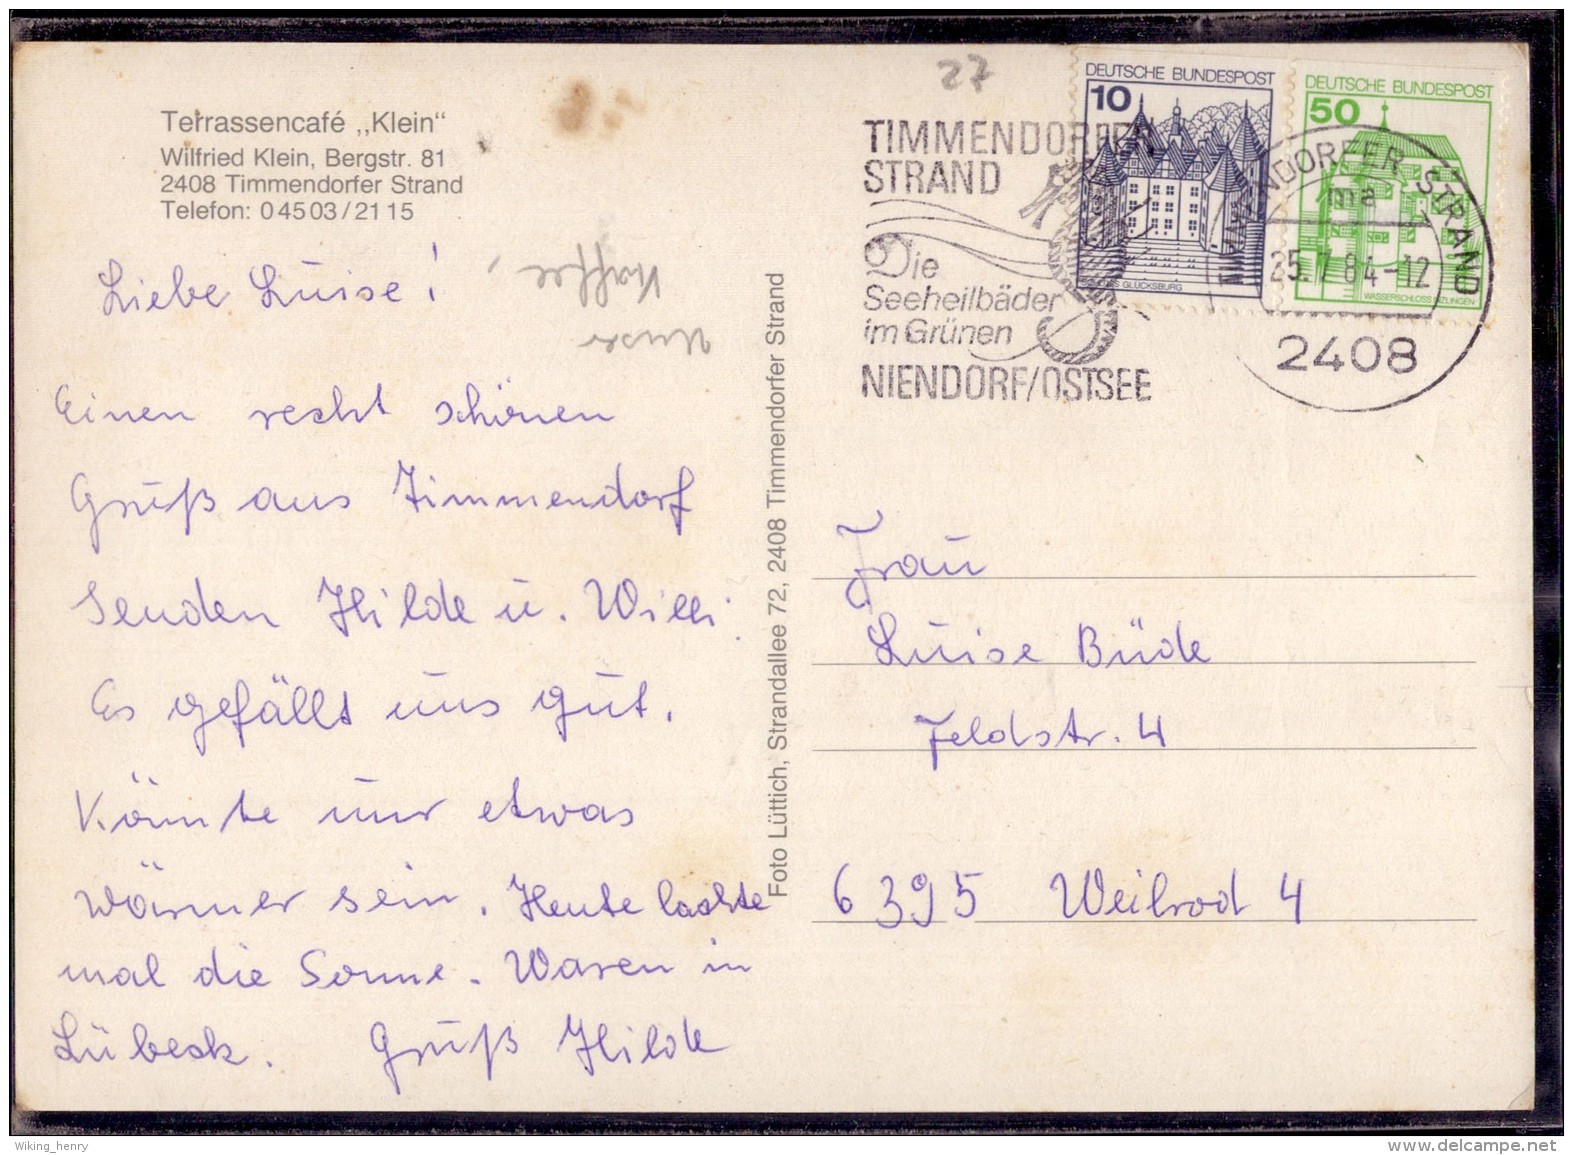 Terrassencafé „Klein"
Wilfried Klein, Bergstr. 81
2408 Timmendorfer Strand
Telefon: 0 45 03 / 21 15
Liebe Luise!
Einen recht schönen
Gruß aus Timmendorf
Senden Hilde u. Willi.
Es gefällt uns gut.
Könnte nur etwas
wärmer sein. Heute lachte
mal die Sonne. Waren in
Lübeck. Gruß Hilde
Foto Lüttich, Strandallee 72, 2408 Timmendorfer Strand
27
TIMMENDORFER
STRAND
Die
Seeheilbäder
im Grünen
NIENDORF/OSTSEE
DEUTSCHE BUNDESPOST
10
GLÜCKSBURG
DEUTSCHE BUNDESPOST
50
WASSERSCHLOSS INZLINGEN
TIMMENDORFER STRAND
ma
25.7.84-12
2408
Frau
Luise Büde
Feldstr. 4
6395 Weilrod 4
Wiking_henry
www.delcampe.net